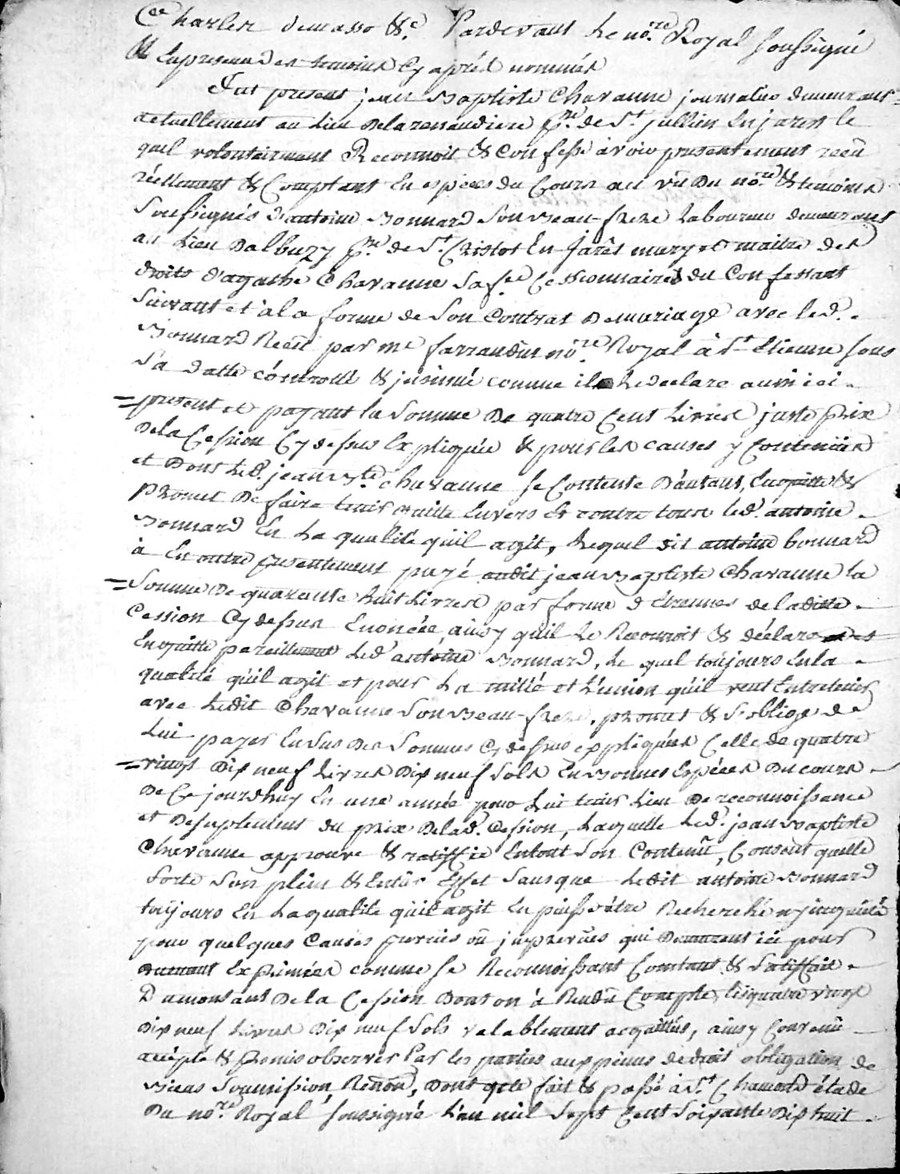 Charles demasso &c. Pardevant le no.re Royal soussigné
& En presence des temoins Cy après nommés
Fut present jean Baptiste Chavanne journalier demeurant
actuellement au Lieu De la renaudiere p.sse de S.t jullien En jarest le
quel volontairement Reconnoit & Confesse avoir presentement recû
réellement & Comptant En espèces du Cours au vû Du no.re & témoins
Soussignés d'antoine Bonnard Son Beau-frere Laboureur demeurant
au Lieu Dalbuzy p.sse de S.t Cristot En Jarêst mary et maitre des
droits d'agathe Chavanne Sa fe. Cessionnaires du Confessant
Suivant et à la forme de Son Contrat De mariage avec le d.
Bonnard Recû par m.e farraudun no.re Royal à S.t Etienne sous
Sa datte contrôlé & insinué comme il le declare aussi ici
present et payant la Somme De quatre Cent Livres juste prix
De la Cession Cy dessus Expliquée & pour les causes y Contenues
et Dont Le d. jean B.te Chavanne se Contente D'autant, En quitte &
Promet De faire tenir quitte Envers Et contre tous le d. antoine
Bonnard En La qualité qu'il agit, Lequel dit antoine bonnard
à En outre presentement payé audit jean Baptiste Chavanne la
Somme De quarente huit Livres par forme d'Etrennes de la ditte
Cession Cy dessus Enoncée, ainsy qu'il Le Reconnoit & déclare et
En quitte pareillement Le d. antoine Bonnard, Le quel toujours En la
qualité qu'il agit et pour La mitié et L'union qu'il veut Entretenir
avec Ledit Chavanne Son Beau-frere, promet & S'oblige de
Lui payer En Sus Des Sommes Cy dessus expliquées Celle de quatre
vingt Dix neuf Livres Dix neuf Sols En Bonnes Espéces Du cours
De Ce jourdhuy En une année pour Lui tenir Lieu De reconnoissance
et De suplement du prix De la d. Cession, Laquelle Le d. jean Baptiste
Chavanne approuve & ratiffie En tout Son Contenû, Consent quelle
Sorte Son plein & Entier Effet Sans que Ledit antoine Bonnard
toujours En La qualité qu'il agit En puisse être Recherché ny inquiété
pour quelques Causes prevües où imprevües qui Demeurent ici pour
Exprimées comme se Reconnoissant Contant & Satisfait
Du montant De la Cession Dont on à Rendu Compte, Les quatre vingt
Dix neuf Livres Dix neuf Sols valablement acquittés, ainsy Convenû
accépté & Promis observer Par les parties aux peines de droit obligation de
Biens Soumission, Renon. Dont acte fait & passé à S.t Chamond étude
Du no.re Royal soussigné L'an mil Sept Cent Soixante Dix huit